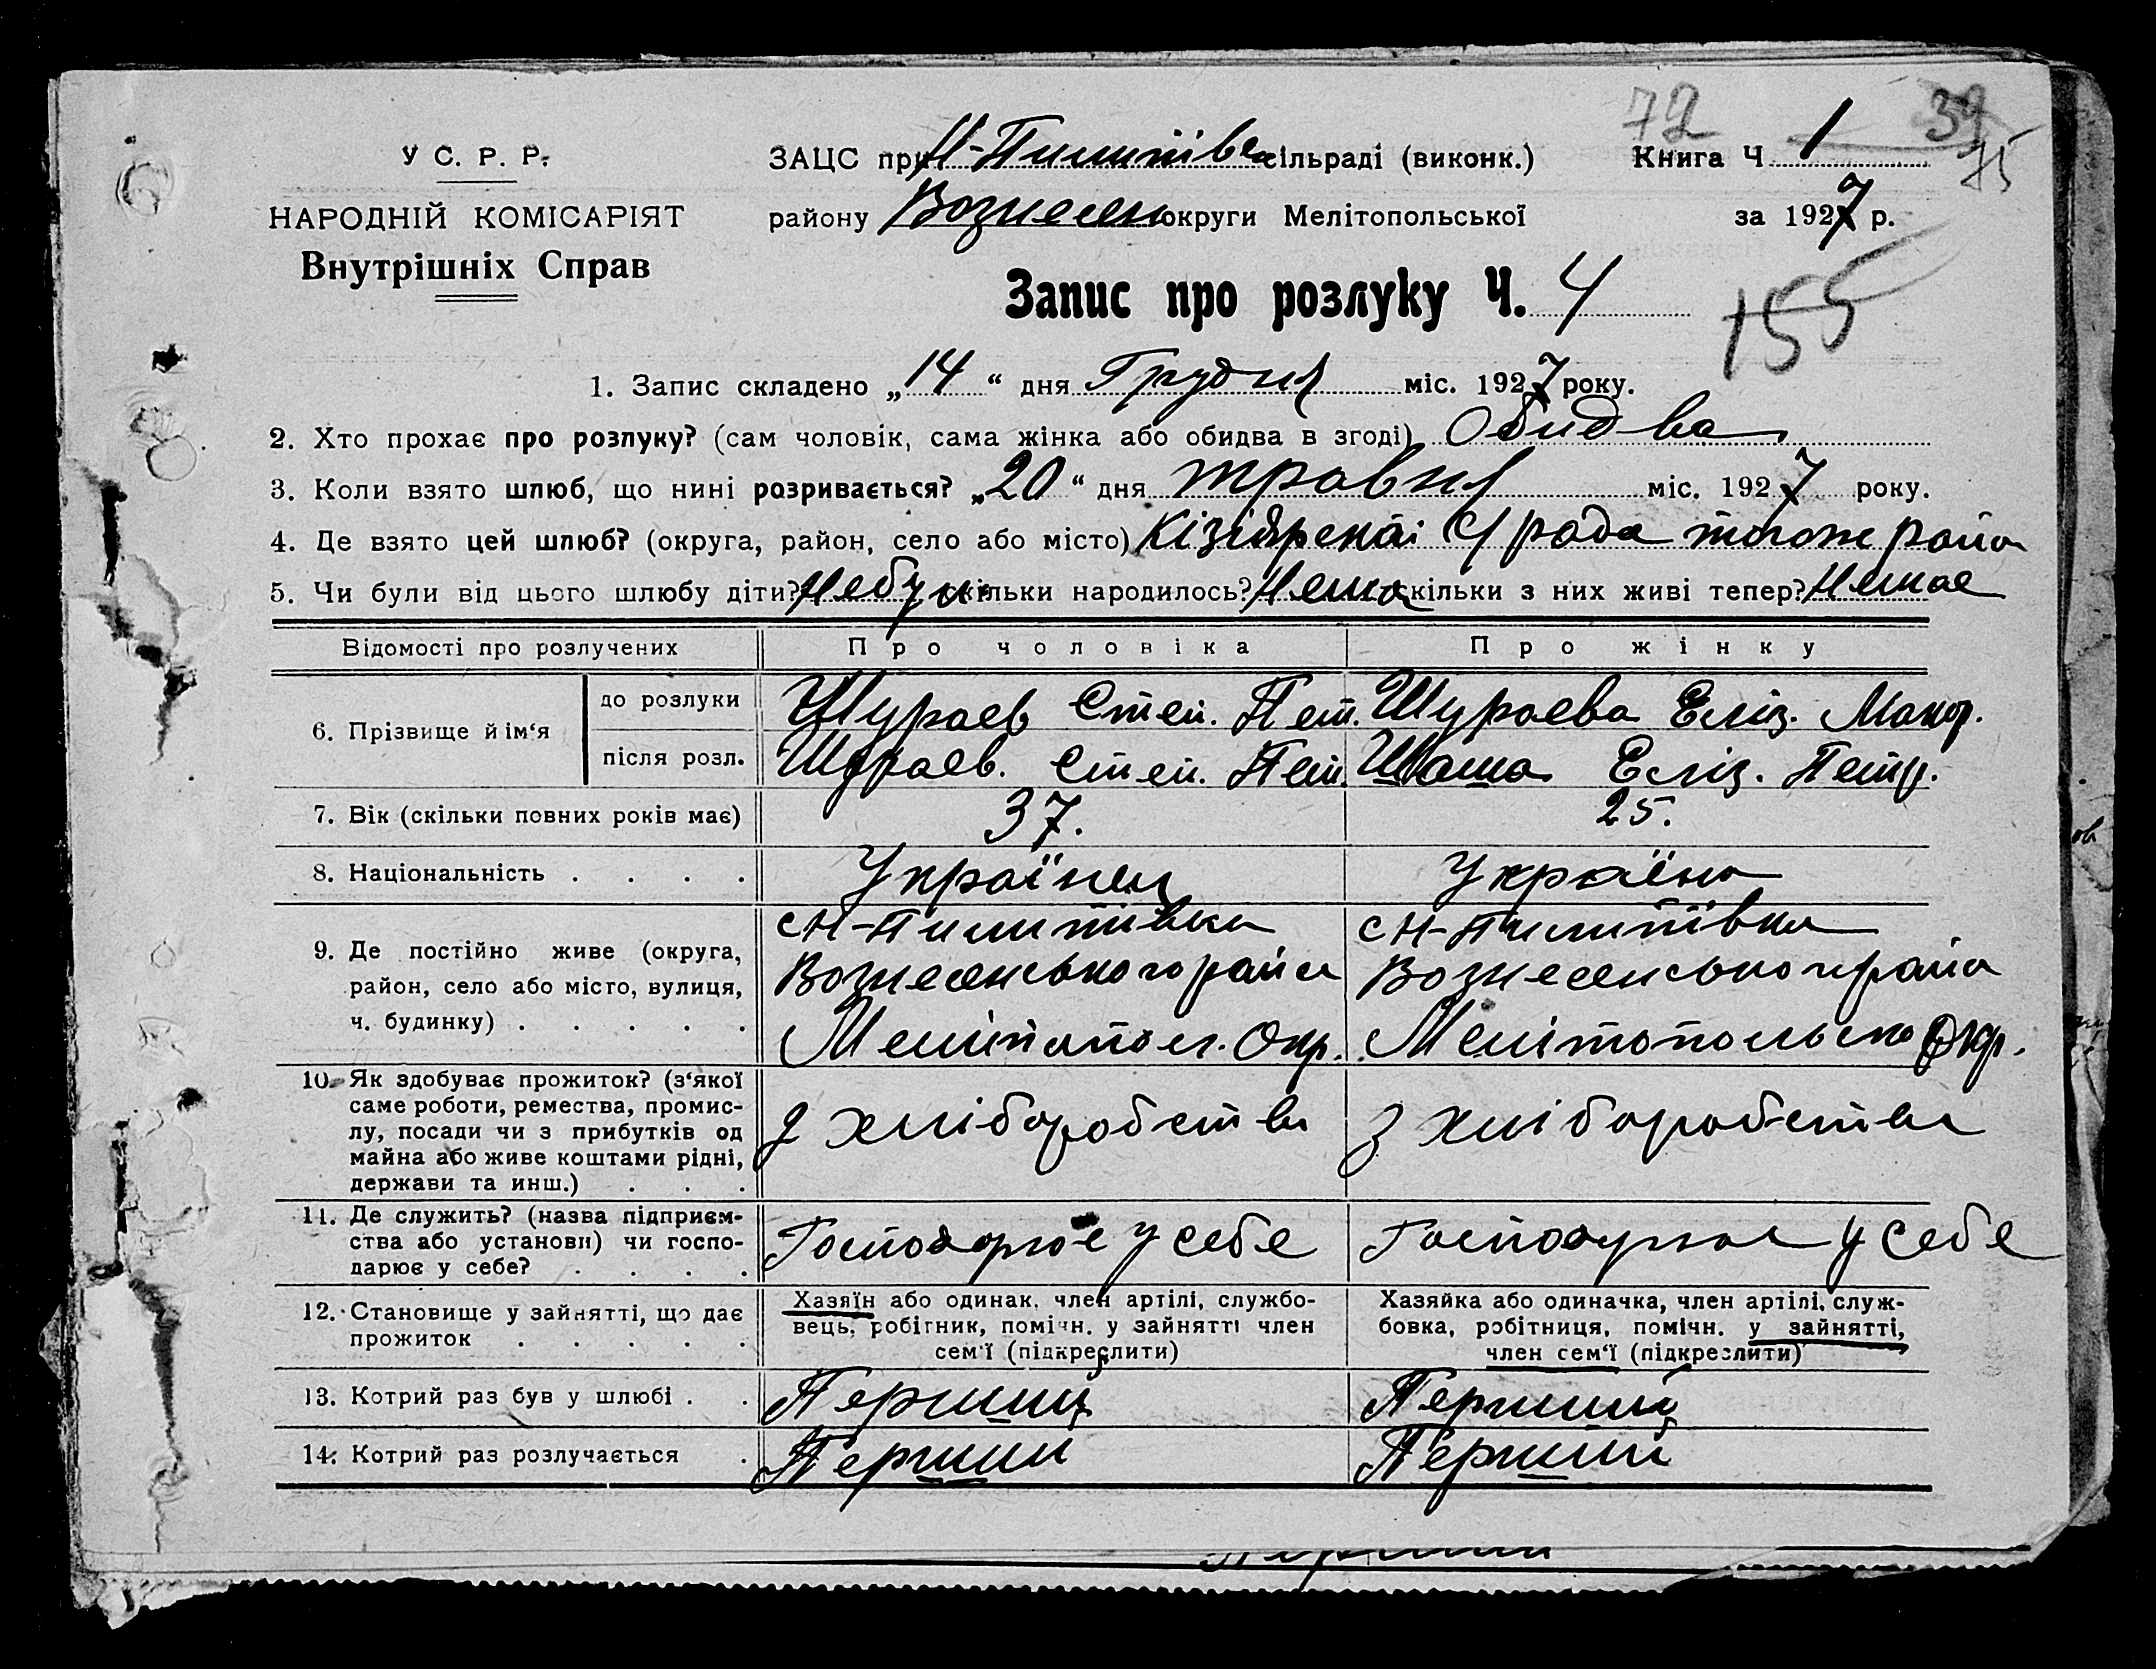 72 39
75
У С. Р. Р.
НАРОДНІЙ КОМІСАРІЯТ
Внутрішніх Справ
ЗАЦС при Н-Пилипівс сільраді (виконк.) Книга Ч 1
району Вознесен округи Мелітопольської за 1927 р.
Запис про розлуку Ч. 4
155
1. Запис складено „14“ дня Грудня міс. 1927 року.
2. Хто прохає про розлуку? (сам чоловік, сама жінка або обидва в згоді) Обидва
3. Коли взято шлюб, що нині розривається? „20“ дня травня міс. 1927 року.
4. Де взято цей шлюб? (округа, район, село або місто) Кізіярскаі С/рада тогоже район
5. Чи були від цього шлюбу діти? Небули скільки народилось? Нема скільки з них живі тепер? Немає
Відомості про розлучених Про чоловіка Про жінку
6. Прізвище й ім'я до розлуки Шураев Степ. Пет. Шураева Еліз. Макар.
після розл. Шураев. Степ. Пет. Еліз. Петр.
7. Вік (скільки повних років має) 37. 25.
8. Національність . . . . Українец Україна
9. Де постійно живе (округа, район, село або місто, вулиця, ч. будинку) . . . . .
с Н-Пилипівка
Вознесенського района
Мелітопол. Окр.
с Н-Пилипівка
Вознесенського район
Мелітопольско Окр.
10. Як здобуває прожиток? (з'якої
саме роботи, ремества, промис-
лу, посади чи з прибутків од
майна або живе коштами рідні,
держави та инш.) . . .
з хліборобства
з хліборобства
11. Де служить? (назва підприєм-
ства або установи) чи госпо-
дарює у себе? . . . .
Господорює у себе
Господорює у себе
12. Становище у зайнятті, що дає
прожиток . . . . .
Хазяїн або одинак, член артілі, службо-
вець, робітник, помічн. у зайнятті член
сем'ї (підкреслити)
Хазяйка або одиначка, член артілі, служ-
бовка, робітниця, помічн. у зайнятті,
член сем'ї (підкреслити)
13. Котрий раз був у шлюбі . . Перший Перший
14. Котрий раз розлучається . Перший Перший